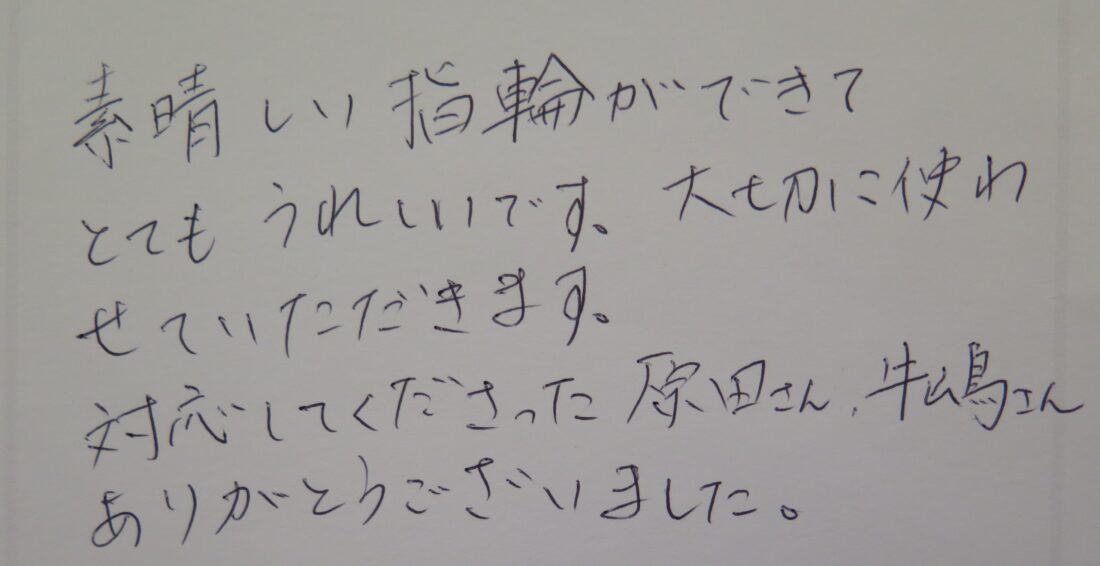 素晴しい指輪ができて
とてもうれしいです。大切に使わ
せていただきます。
対応してくださった原田さん、牛嶋さん
ありがとうございました。